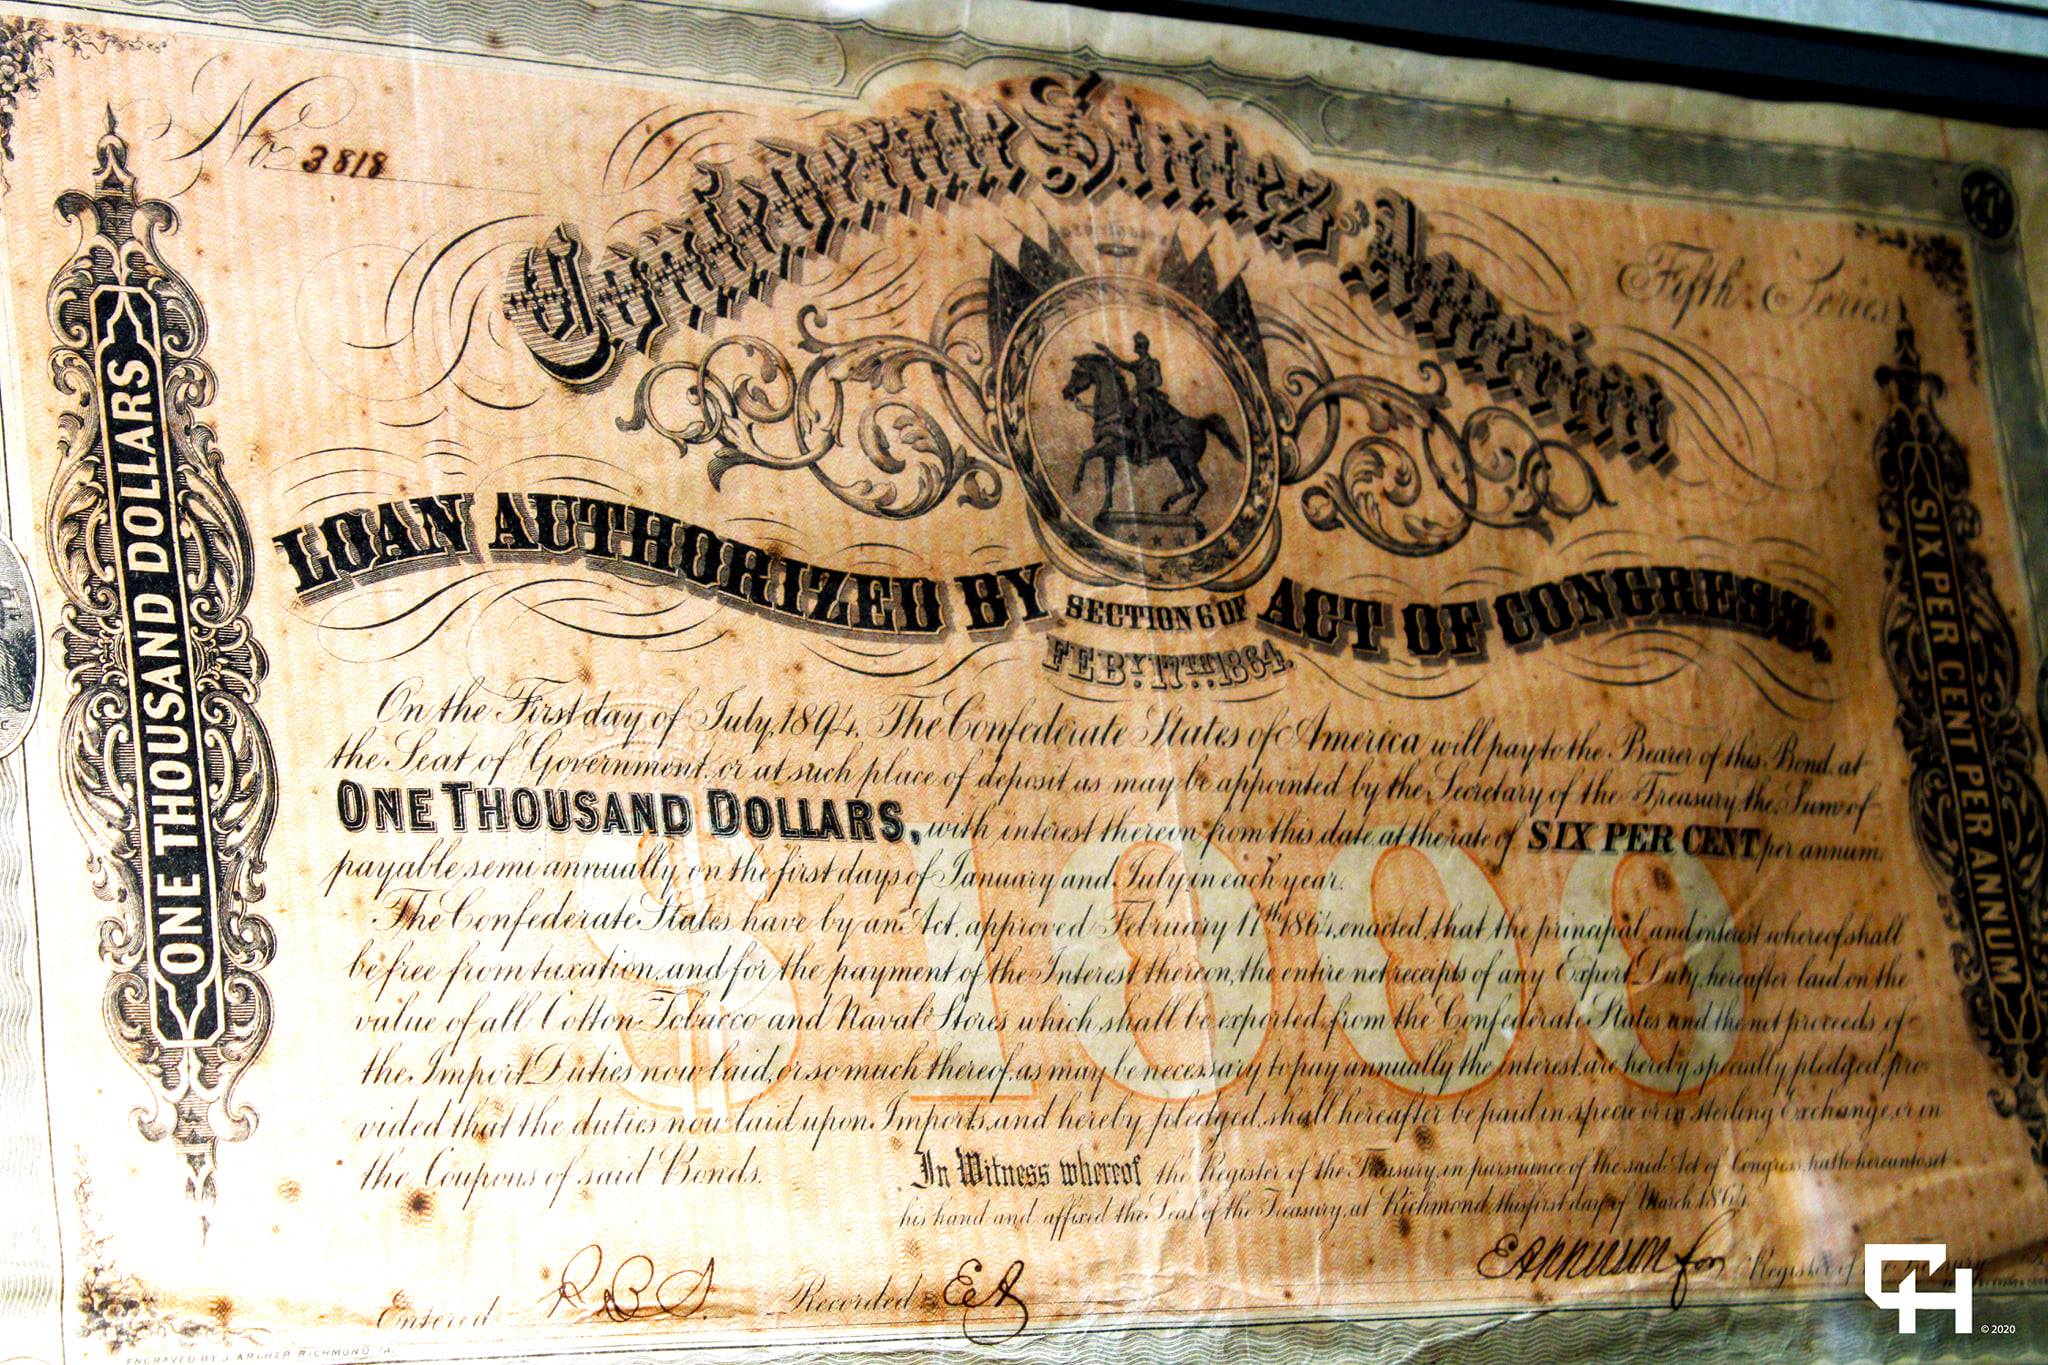 No. 3818
Confederate States America
Fifth Series
LOAN AUTHORIZED BY SECTION 6 OF ACT OF CONGRESS.
FEBY. 17TH. 1864.
ONE THOUSAND DOLLARS
SIX PER CENT PER ANNUM
On the First day of July, 1894, The Confederate States of America will pay to the Bearer of this Bond, at
the Seat of Government, or at such place of deposit as may be appointed by the Secretary of the Treasury the Sum of
ONE THOUSAND DOLLARS, with interest thereon from this date at the rate of SIX PER CENT per annum,
payable semi annually on the first days of January and July in each year.
$1000
The Confederate States have by an Act, approved February 17th 1864, enacted, that the principal and interest whereof shall
be free from taxation, and for the payment of the Interest thereon, the entire net receipts of any Export Duty hereafter laid on the
value of all Cotton Tobacco and Naval Stores which shall be exported from the Confederate States and the net proceeds of
the Import Duties now laid, or so much thereof, as may be necessary to pay annually the interest, are hereby specially pledged, pro-
vided that the duties now laid upon Imports, and hereby pledged, shall hereafter be paid in specie or in Sterling Exchange, or in
the Coupons of said Bonds.
In Witness whereof the Register of the Treasury, in pursuance of the said Act of Congress, hath hereunto set
his hand and affixed the Seal of the Treasury, at Richmond, this first day of March 1864.
Entered Recorded EA for Register of
ENGRAVED BY J. ARCHER RICHMOND, VA.
© 2020